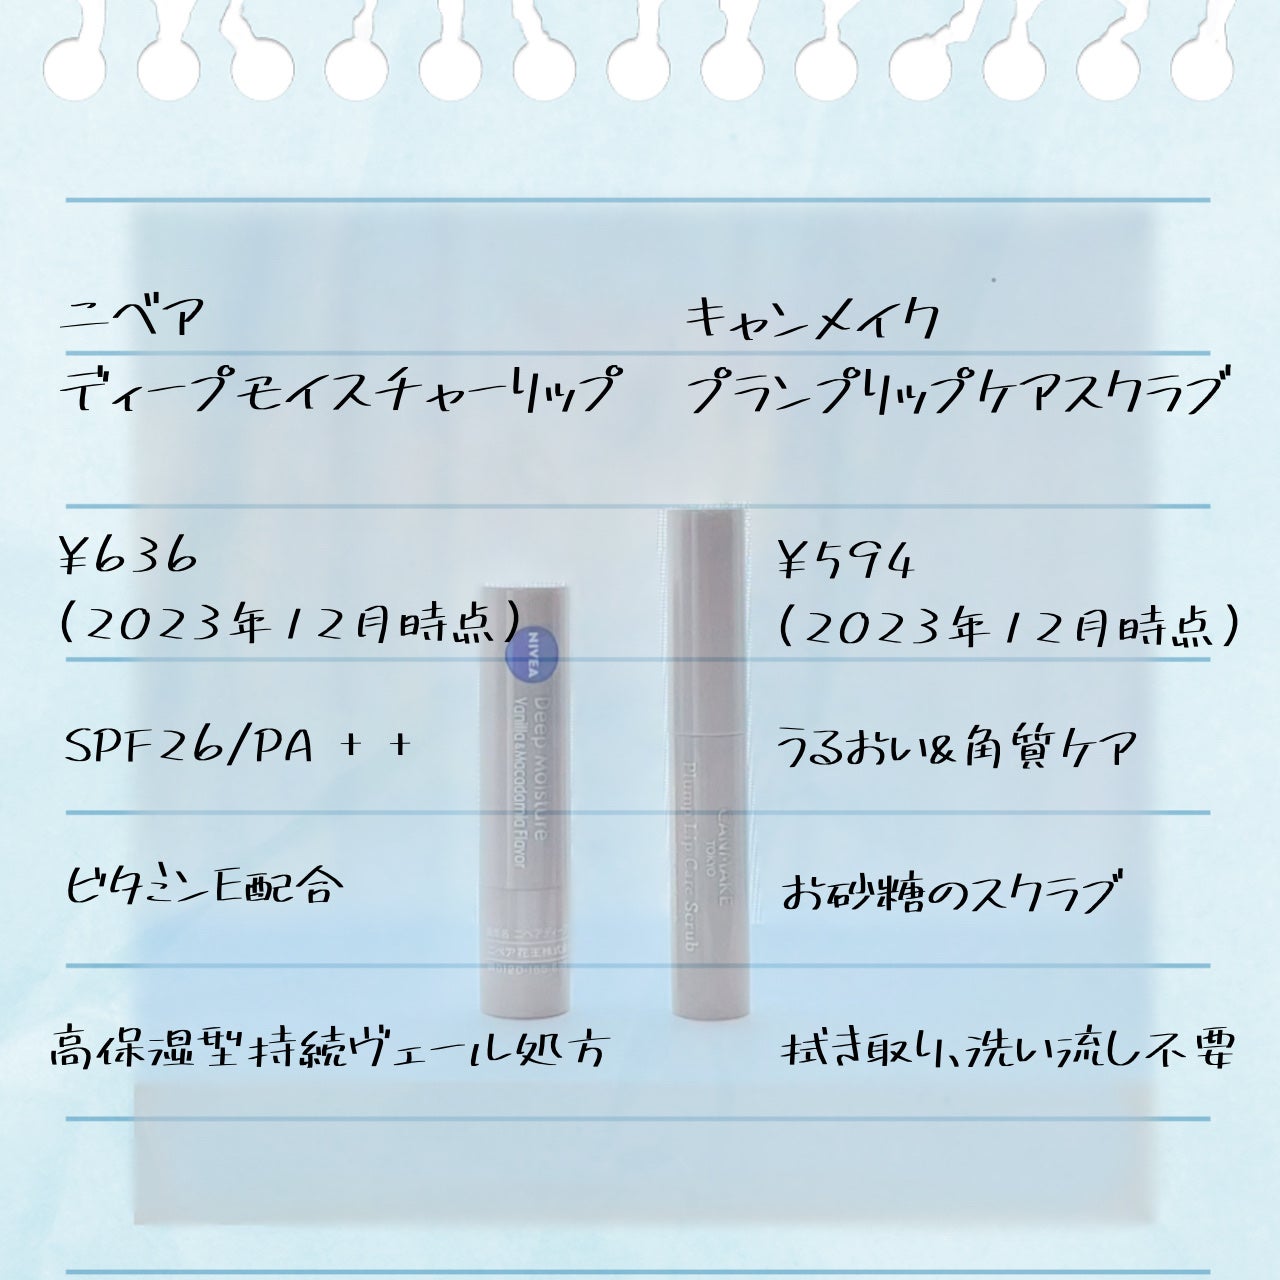 ニベア
ディープモイスチャーリップ
¥636
(2023年12月時点)
SPF26/PA++
ビタミンE配合
高保湿型持続ヴェール処方
キャンメイク
プランプリップケアスクラブ
¥594
(2023年12月時点)
うるおい&角質ケア
お砂糖のスクラブ
拭き取り、洗い流し不要
NIVEA
Deep Moisture
Vanilla & Macadamia Flavor
ニベア花王株式
CANMAKE
TOKYO
Plump Lip Care Scrub